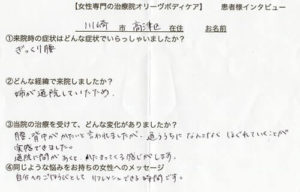 【女性専門の治療院オリーヴボディケア】 患者様インタビュー
川崎 市 高津区 在住 お名前
①来院時の症状はどんな症状でいらっしゃいましたか?
ぎっくり腰
②どんな経緯で来院しましたか?
姉が通院していたため。
③当院の治療を受けて、どんな変化がありましたか?
腰、背中がかたいと言われましたが、通ううちになんとなくほぐれていくことが
実感できました。
通院に間があくと、かたまってくる感じがします。
④同じような悩みをお持ちの女性へのメッセージ
自分へのごほうびとしてリフレッシュできる時間です。